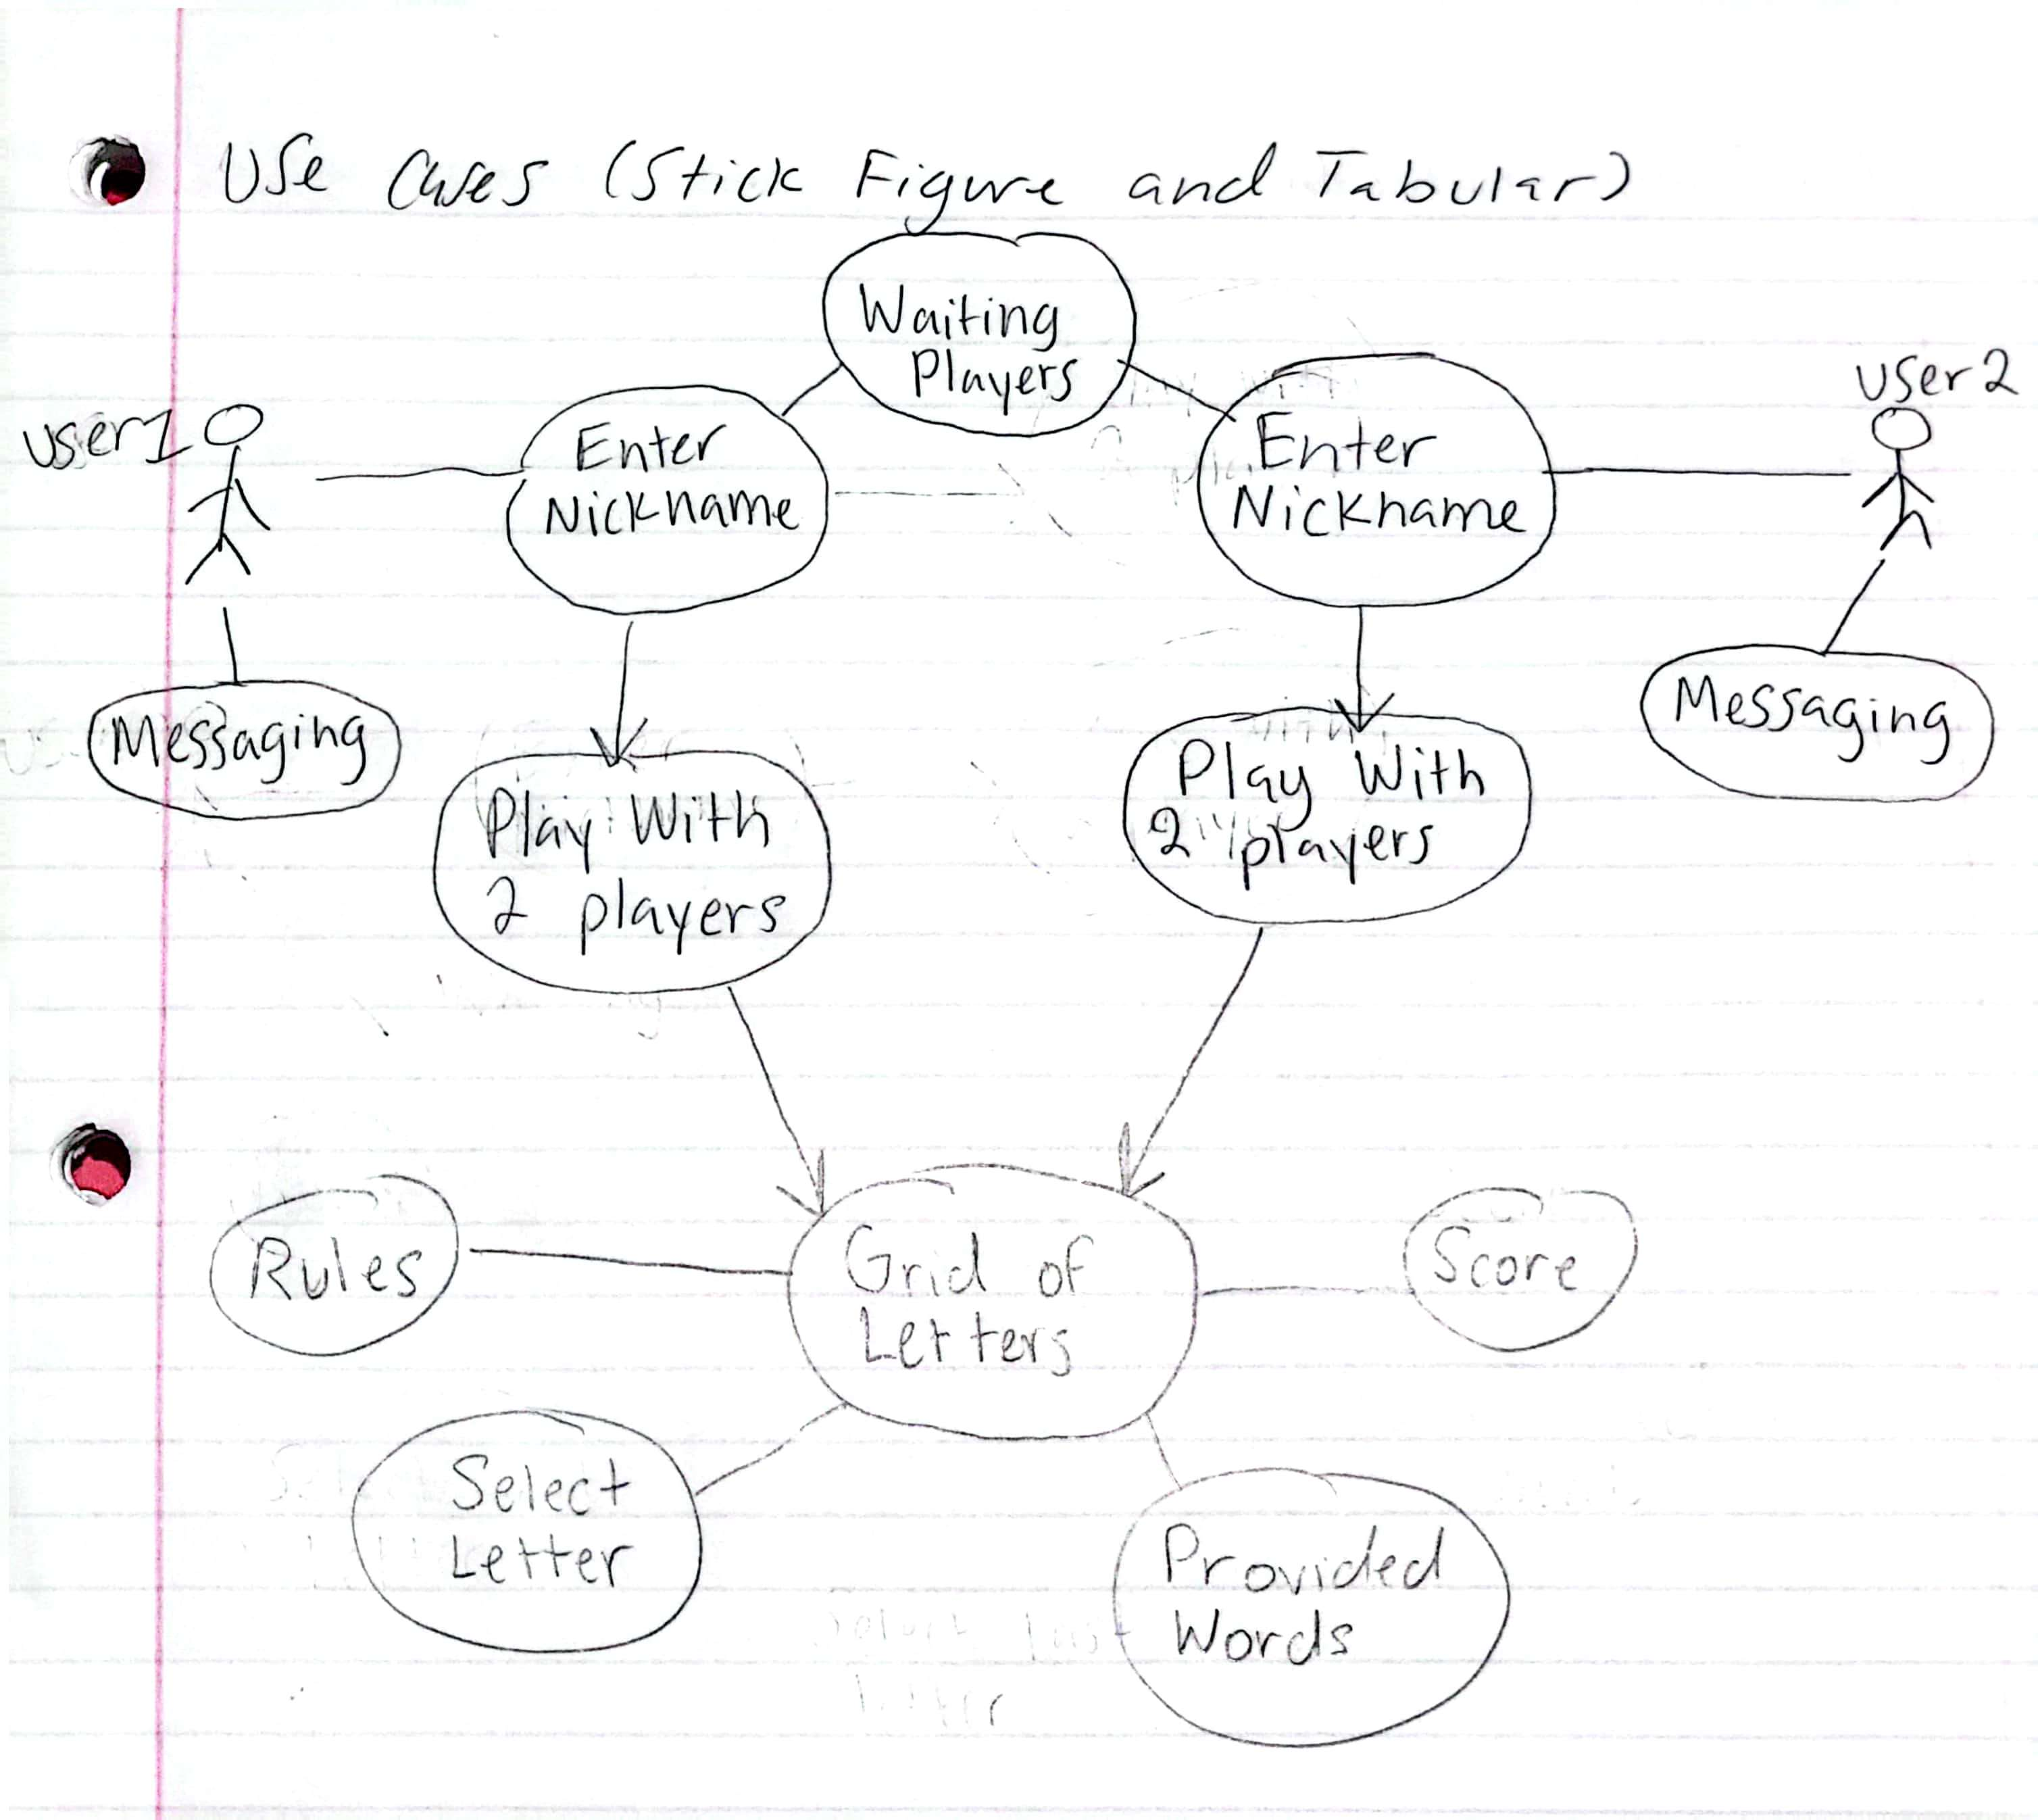 Use Cases (Stick Figure and Tabular)
Waiting
Players
user1
Enter
Nickname
Enter
Nickname
user2
Messaging
Play With
2 players
Play With
2 players
Messaging
Rules
Grid of
Letters
Score
Select
Letter
Provided
Words